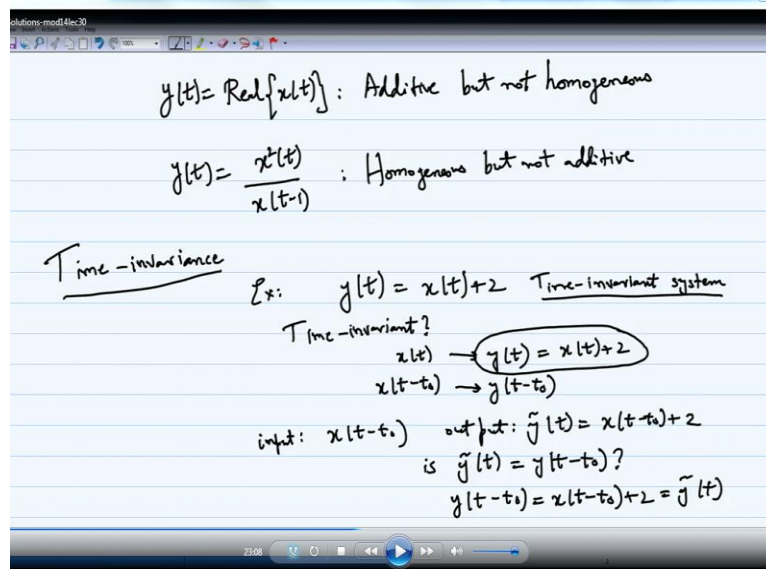 olutions-mod14lec30
y(t)= Real{x(t)} : Additive but not homogeneous
y(t)= x²(t) / x(t-1) : Homogeneous but not additive
Time-invariance
Ex: y(t) = x(t)+2 Time-invariant system
Time-invariant?
x(t) → y(t) = x(t)+2
x(t-t₀) → y(t-t₀)
input: x(t-t₀) output: ỹ(t) = x(t-t₀)+2
is ỹ(t) = y(t-t₀)?
y(t-t₀) = x(t-t₀)+2 = ỹ(t)
23:08